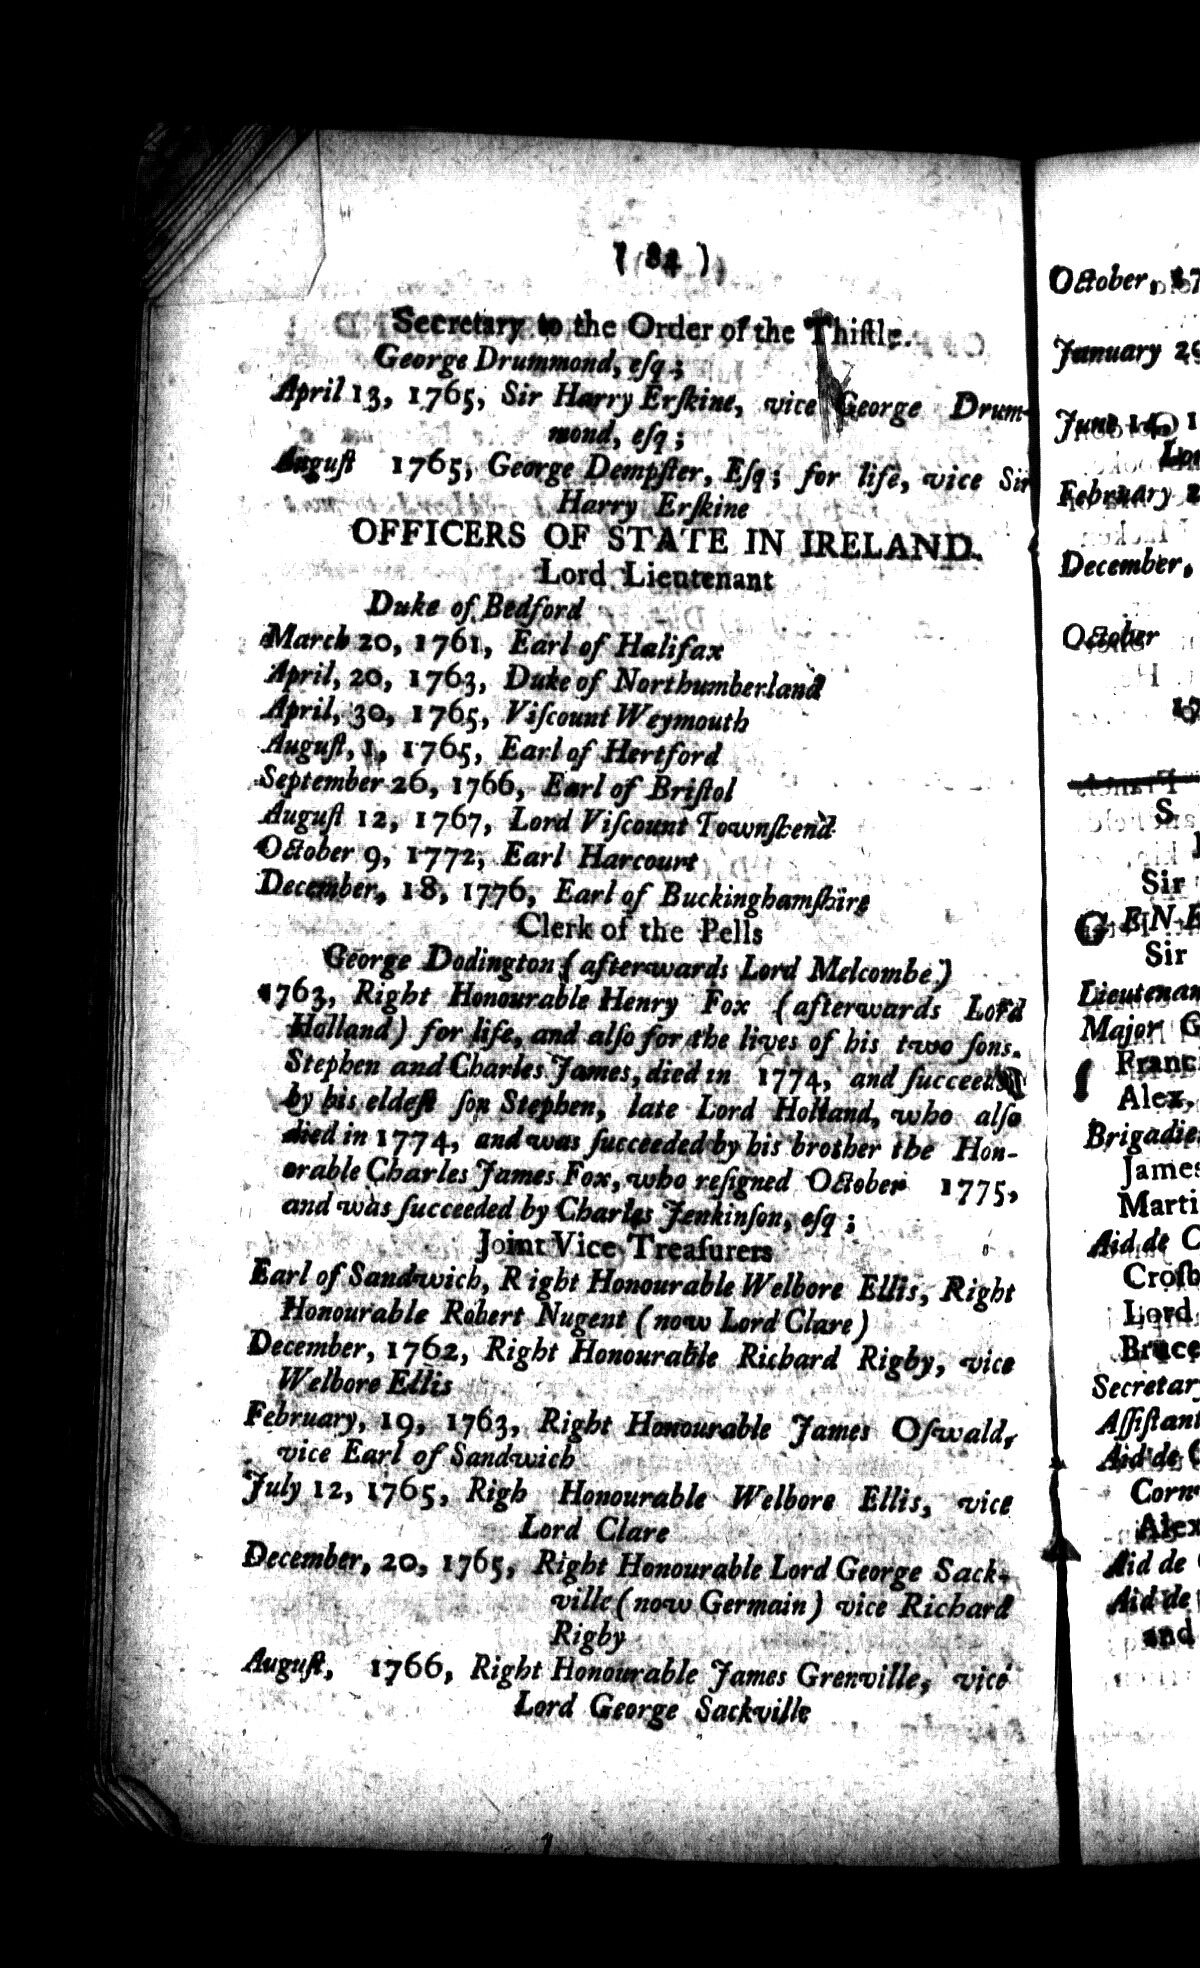 ( 84 )
Secretary to the Order of the Thiſtle.
George Drummond, eſq;
April 13, 1765, Sir Harry Erſkine, vice George Drum-
mond, eſq;
Auguſt 1765, George Dempſter, Eſq; for life, vice Sir
Harry Erſkine
OFFICERS OF STATE IN IRELAND.
Lord Lieutenant
Duke of Bedford
March 20, 1761, Earl of Halifax
April, 20, 1763, Duke of Northumberland
April, 30, 1765, Viſcount Weymouth
Auguſt, 1, 1765, Earl of Hertford
September 26, 1766, Earl of Briſtol
Auguſt 12, 1767, Lord Viſcount Townſhend
October 9, 1772, Earl Harcourt
December, 18, 1776, Earl of Buckinghamſhire
Clerk of the Pells
George Dodington (afterwards Lord Melcombe)
1763, Right Honourable Henry Fox (afterwards Lord
Holland) for life, and alſo for the lives of his two ſons.
Stephen and Charles James, died in 1774, and ſucceeded
by his eldeſt ſon Stephen, late Lord Holland, who alſo
died in 1774, and was ſucceeded by his brother the Hon-
orable Charles James Fox, who reſigned October 1775,
and was ſucceeded by Charles Jenkinſon, eſq;
Joint Vice Treaſurers
Earl of Sandwich, Right Honourable Welbore Ellis, Right
Honourable Robert Nugent (now Lord Clare)
December, 1762, Right Honourable Richard Rigby, vice
Welbore Ellis
February, 19, 1763, Right Honourable James Oſwald,
vice Earl of Sandwich
July 12, 1765, Righ Honourable Welbore Ellis, vice
Lord Clare
December, 20, 1765, Right Honourable Lord George Sack-
ville (now Germain) vice Richard
Rigby
Auguſt, 1766, Right Honourable James Grenville, vice
Lord George Sackville
October,
January
June 14,
February
December,
October
S
Sir
Sir
Lieutenan
Major G
Franc
Alex.
Brigadie
James
Marti
Aid de C
Croſb
Lord
Bruce
Secretary
Aſſiſtant
Aid de C
Corn
Alex
Aid de
Aid de
and